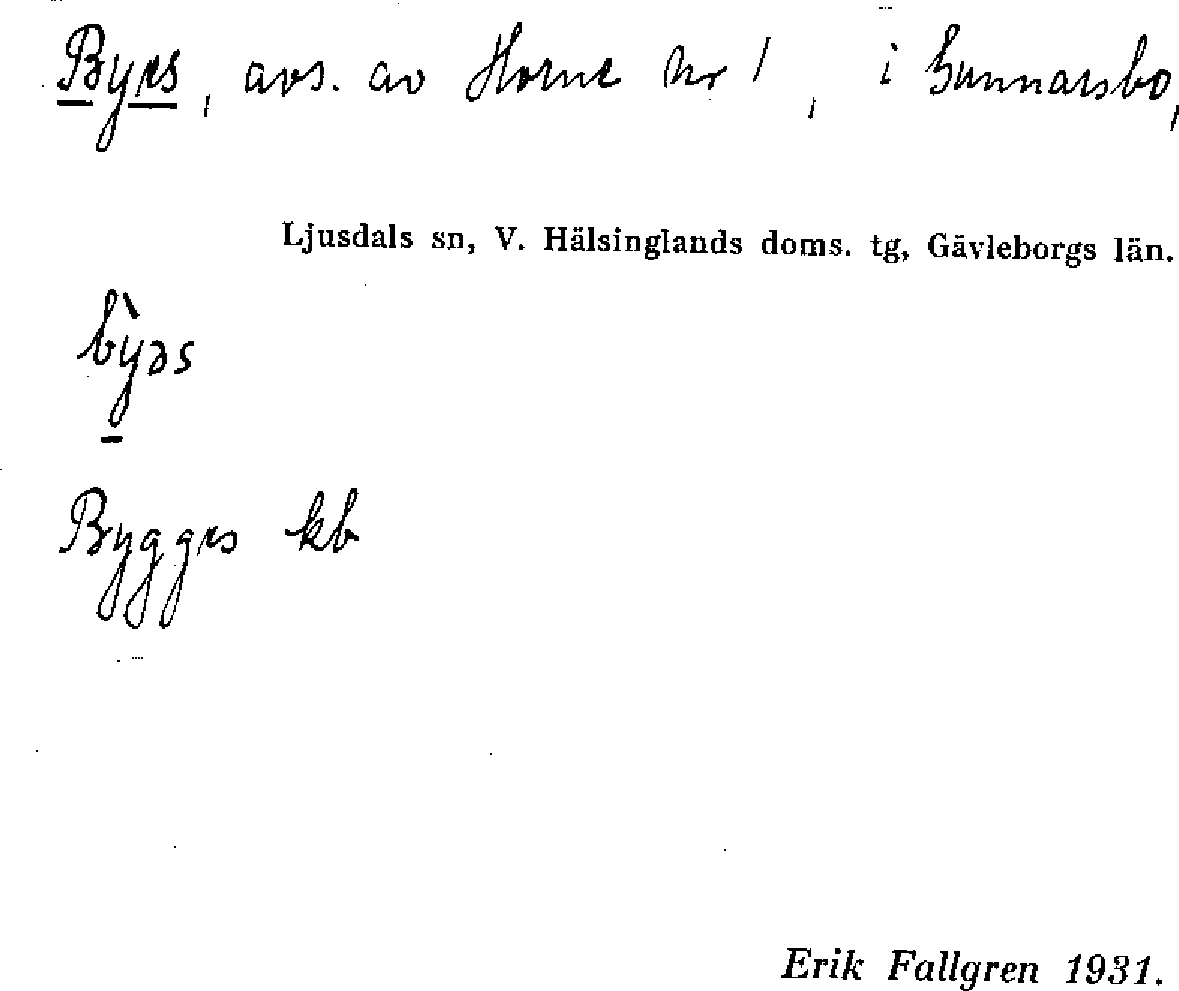 Byes, avs. av Horne Nr 1, i Gunnarsbo,
Ljusdals sn, V. Hälsinglands doms. tg, Gävleborgs län.
by`əs
Bygges kb
Erik Fallgren 1931.